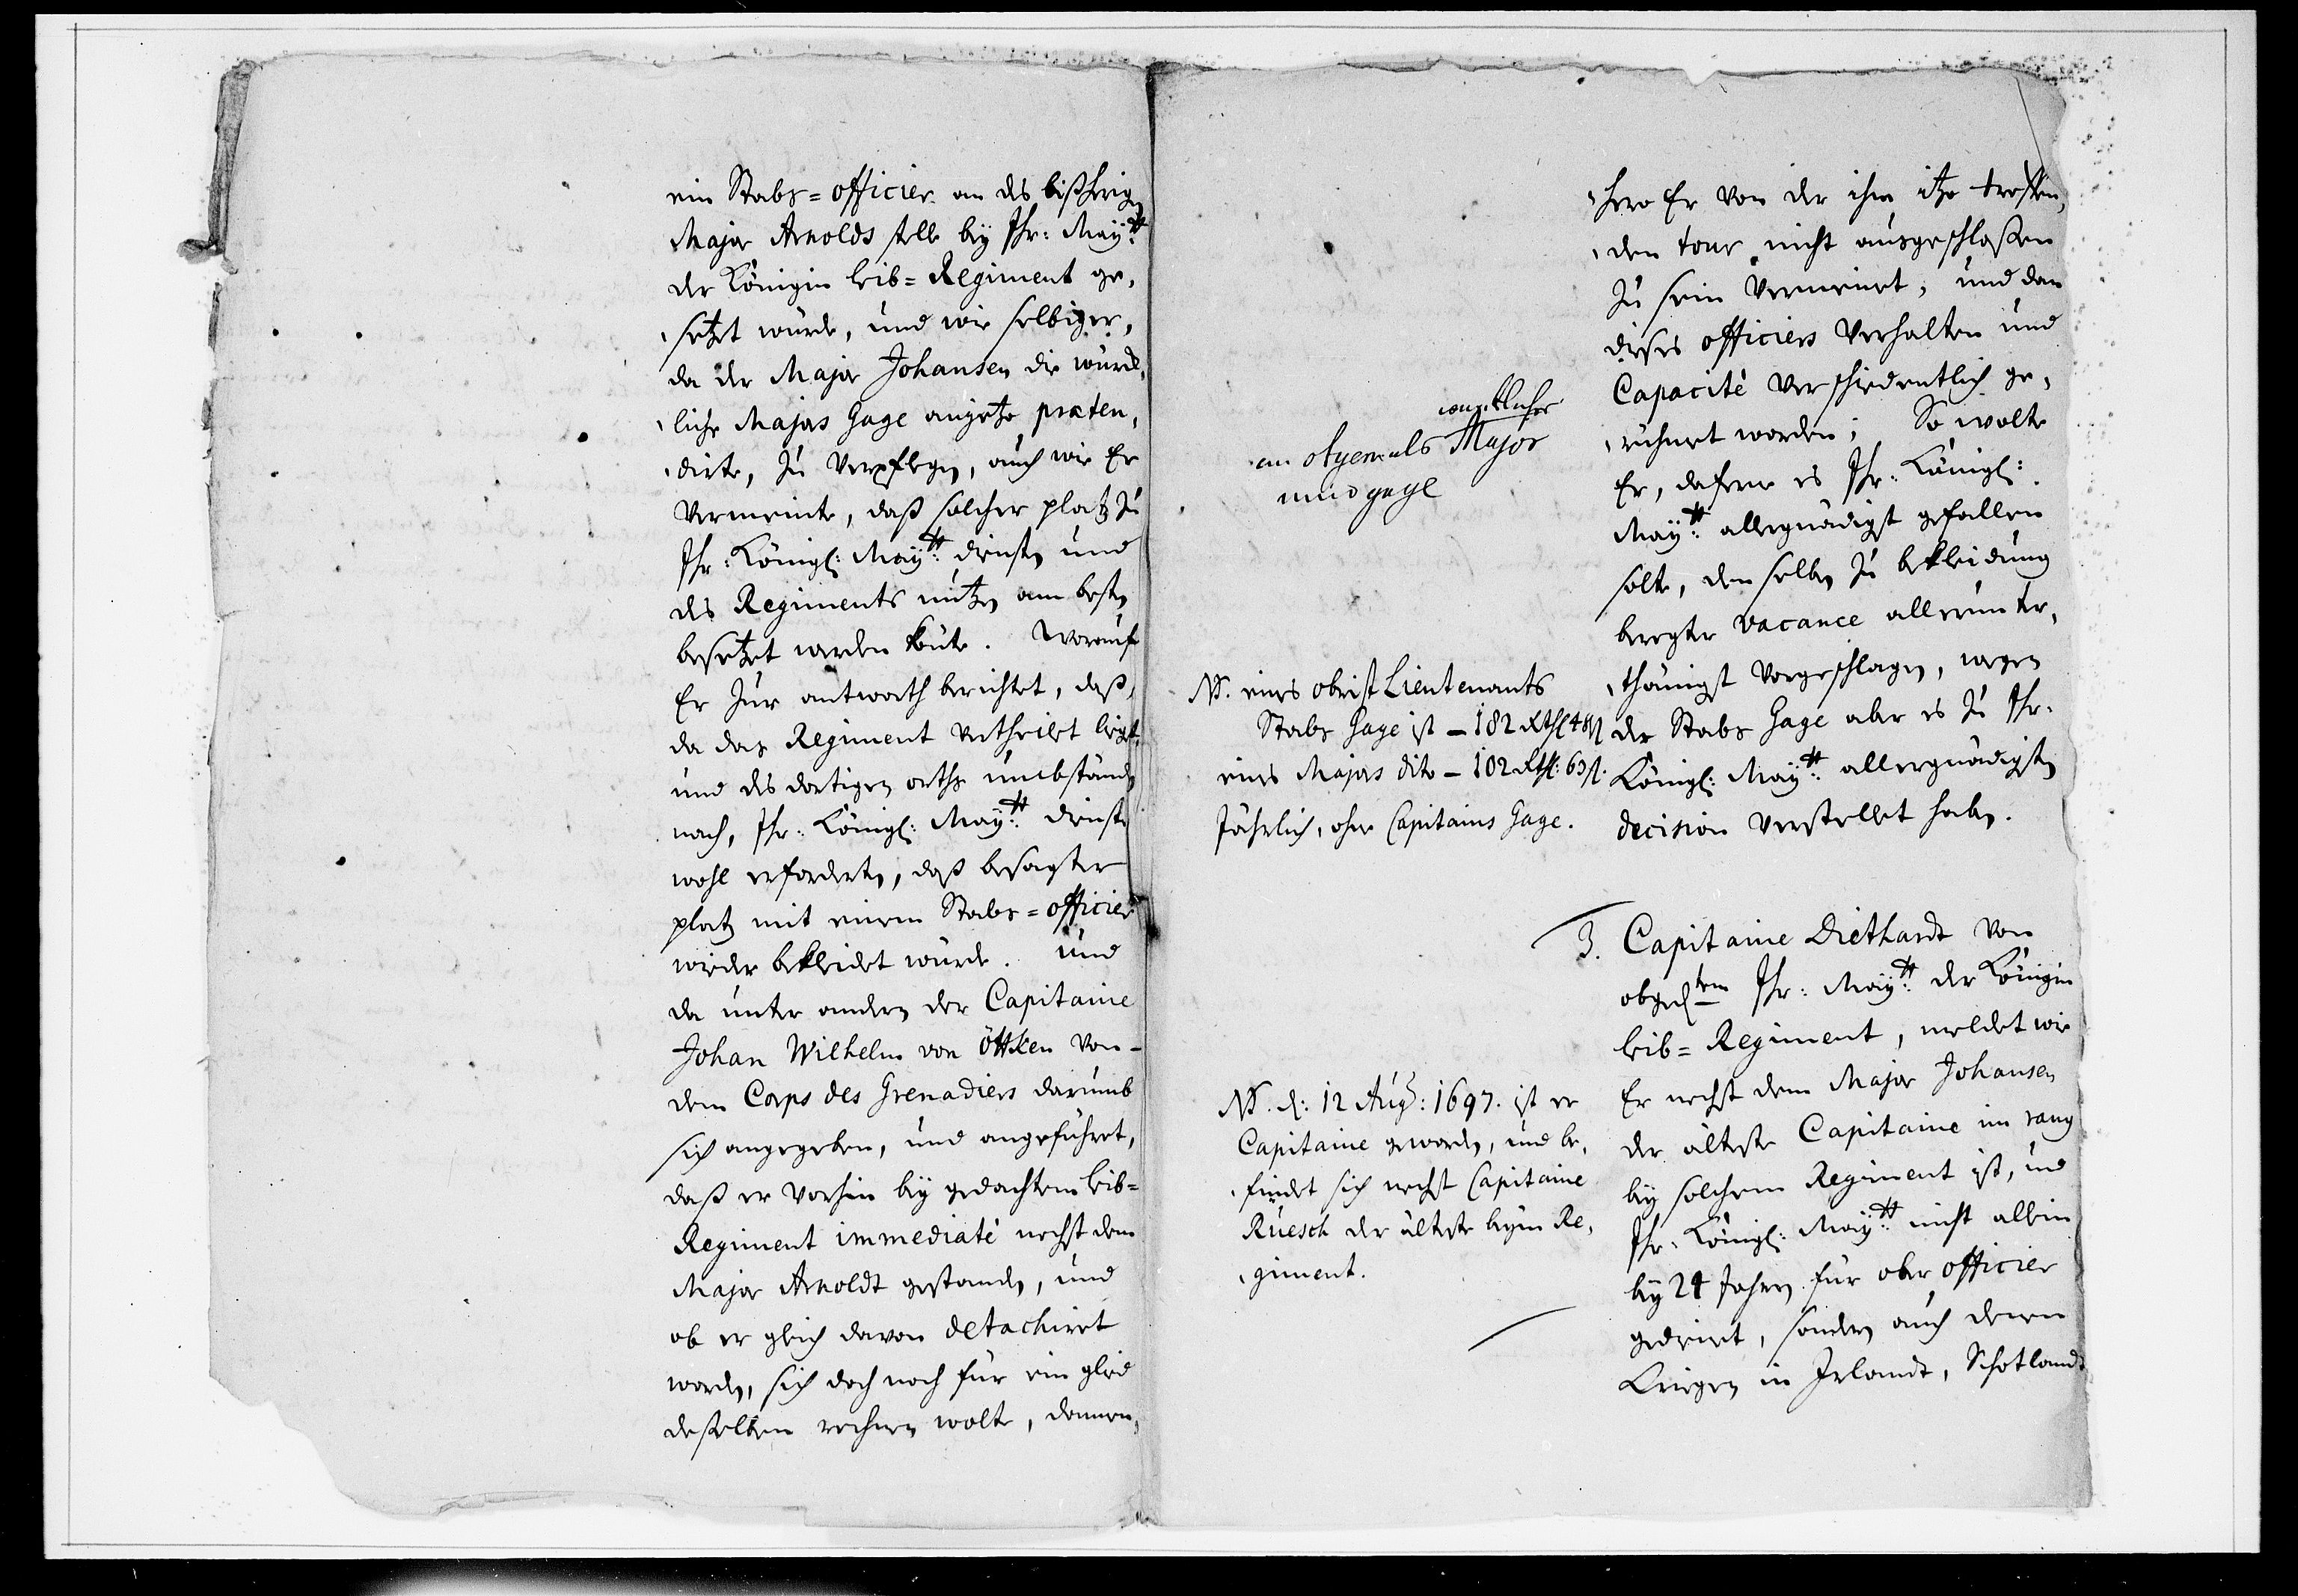 ein Stabs=officier an des bißherigen
Major Arnolds stelle bey Ihr: Maytt:
der Königin leib=Regiment ge,
,setzt würde, und wie selbiger,
da der Major Johansen die würck,
,liche Majors Gage anjetzo præten,
,dirte, zu verpflegen, auch wie Er
vermeinte, daß solcher platz zu
Ihr: Königl: Maytt: dienst und
des Regiments nutzen am besten
besetzet werden könte. Worauf
Er zur antworth berichtet, daß,
da das Regiment vertheilet liegt,
und des dortigen orths umbständen
nach, Ihr: Königl: Maytt: dienste
wohl erforderten, daß besagter
platz mit einem Stabs=officier
wieder bekleidet würde. Und
da unter andern der Capitaine
Johan Wilhelm von Öttken von-
dem Corps des Grenadiers darumb
sich angegeben, und angeführet,
daß er vorhin bey gedachtem leib=
Regiment immediaté nechst dem
Major Arnoldt gestanden, und
ob er gleich davon detachiret
worden, sich doch noch für ein glied
deßelben rechnen wolte, dannen,
,hero Er von der ihm itzo treffen,
,den tour nicht ausgeschloßen
zu sein vermeinet, und dan
dieses officiers verhalten und
Capacité verschiedentlich ge,
,rühmet worden; So wolte
Er, dafern es Ihr: Königl:
Maytt: allergnädigst gefallen
solte, denselben zu bekleidung
beregter vacance allerunter,
,thänigst vorgeschlagen, wegen
der Stabs Gage aber es zu Ihr.
Königl: Maytt: allergnädigsten
decision verstellet haben.
würcklicher
Major
und gage
NB. eines obrist Lieutenants
Stabs Gage ist – 182 Rthl 48 ß
eines Majors dito – 102 Rthl: 63 ß.
Jährlich, ohne Capitains Gage.
3. Capitaine Diethardt von
obgedtem Ihr: Maytt: der Königin
leib=Regiment, meldet wie
Er nechst dem Major Johansen
der älteste Capitaine im rang
bey solchem Regiment ist, und
Ihr: Königl: Maytt: nicht allein
bey 24 Jahren für ober officier
gedienet, sondern auch denen
Kriegen in Irlandt, Schotlandt
NB. d: 12 Aug: 1697. ist er
Capitaine geworden, und be,
,findet sich nechst Capitaine
Ruesch der älteste beym Re,
,giment.